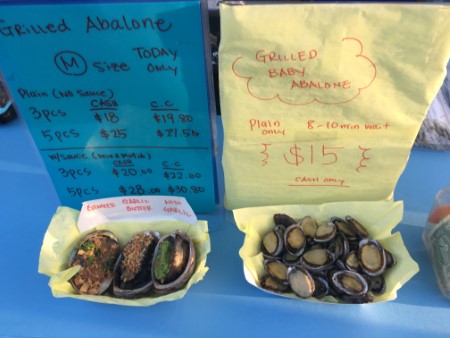 Grilled Abalone
M Size TODAY ONLY
Plain (No Sauce)
CASH C.C
3pcs $18 $19.80
5pcs $25 $27.50
CASH C.C
3pcs $20.00 $22.00
5pcs $28.00 $30.80
GARLIC BUTTER
GARLIC
GRILLED
BABY
ABALONE
Plain only 8-10 min wait
$15
CASH ONLY